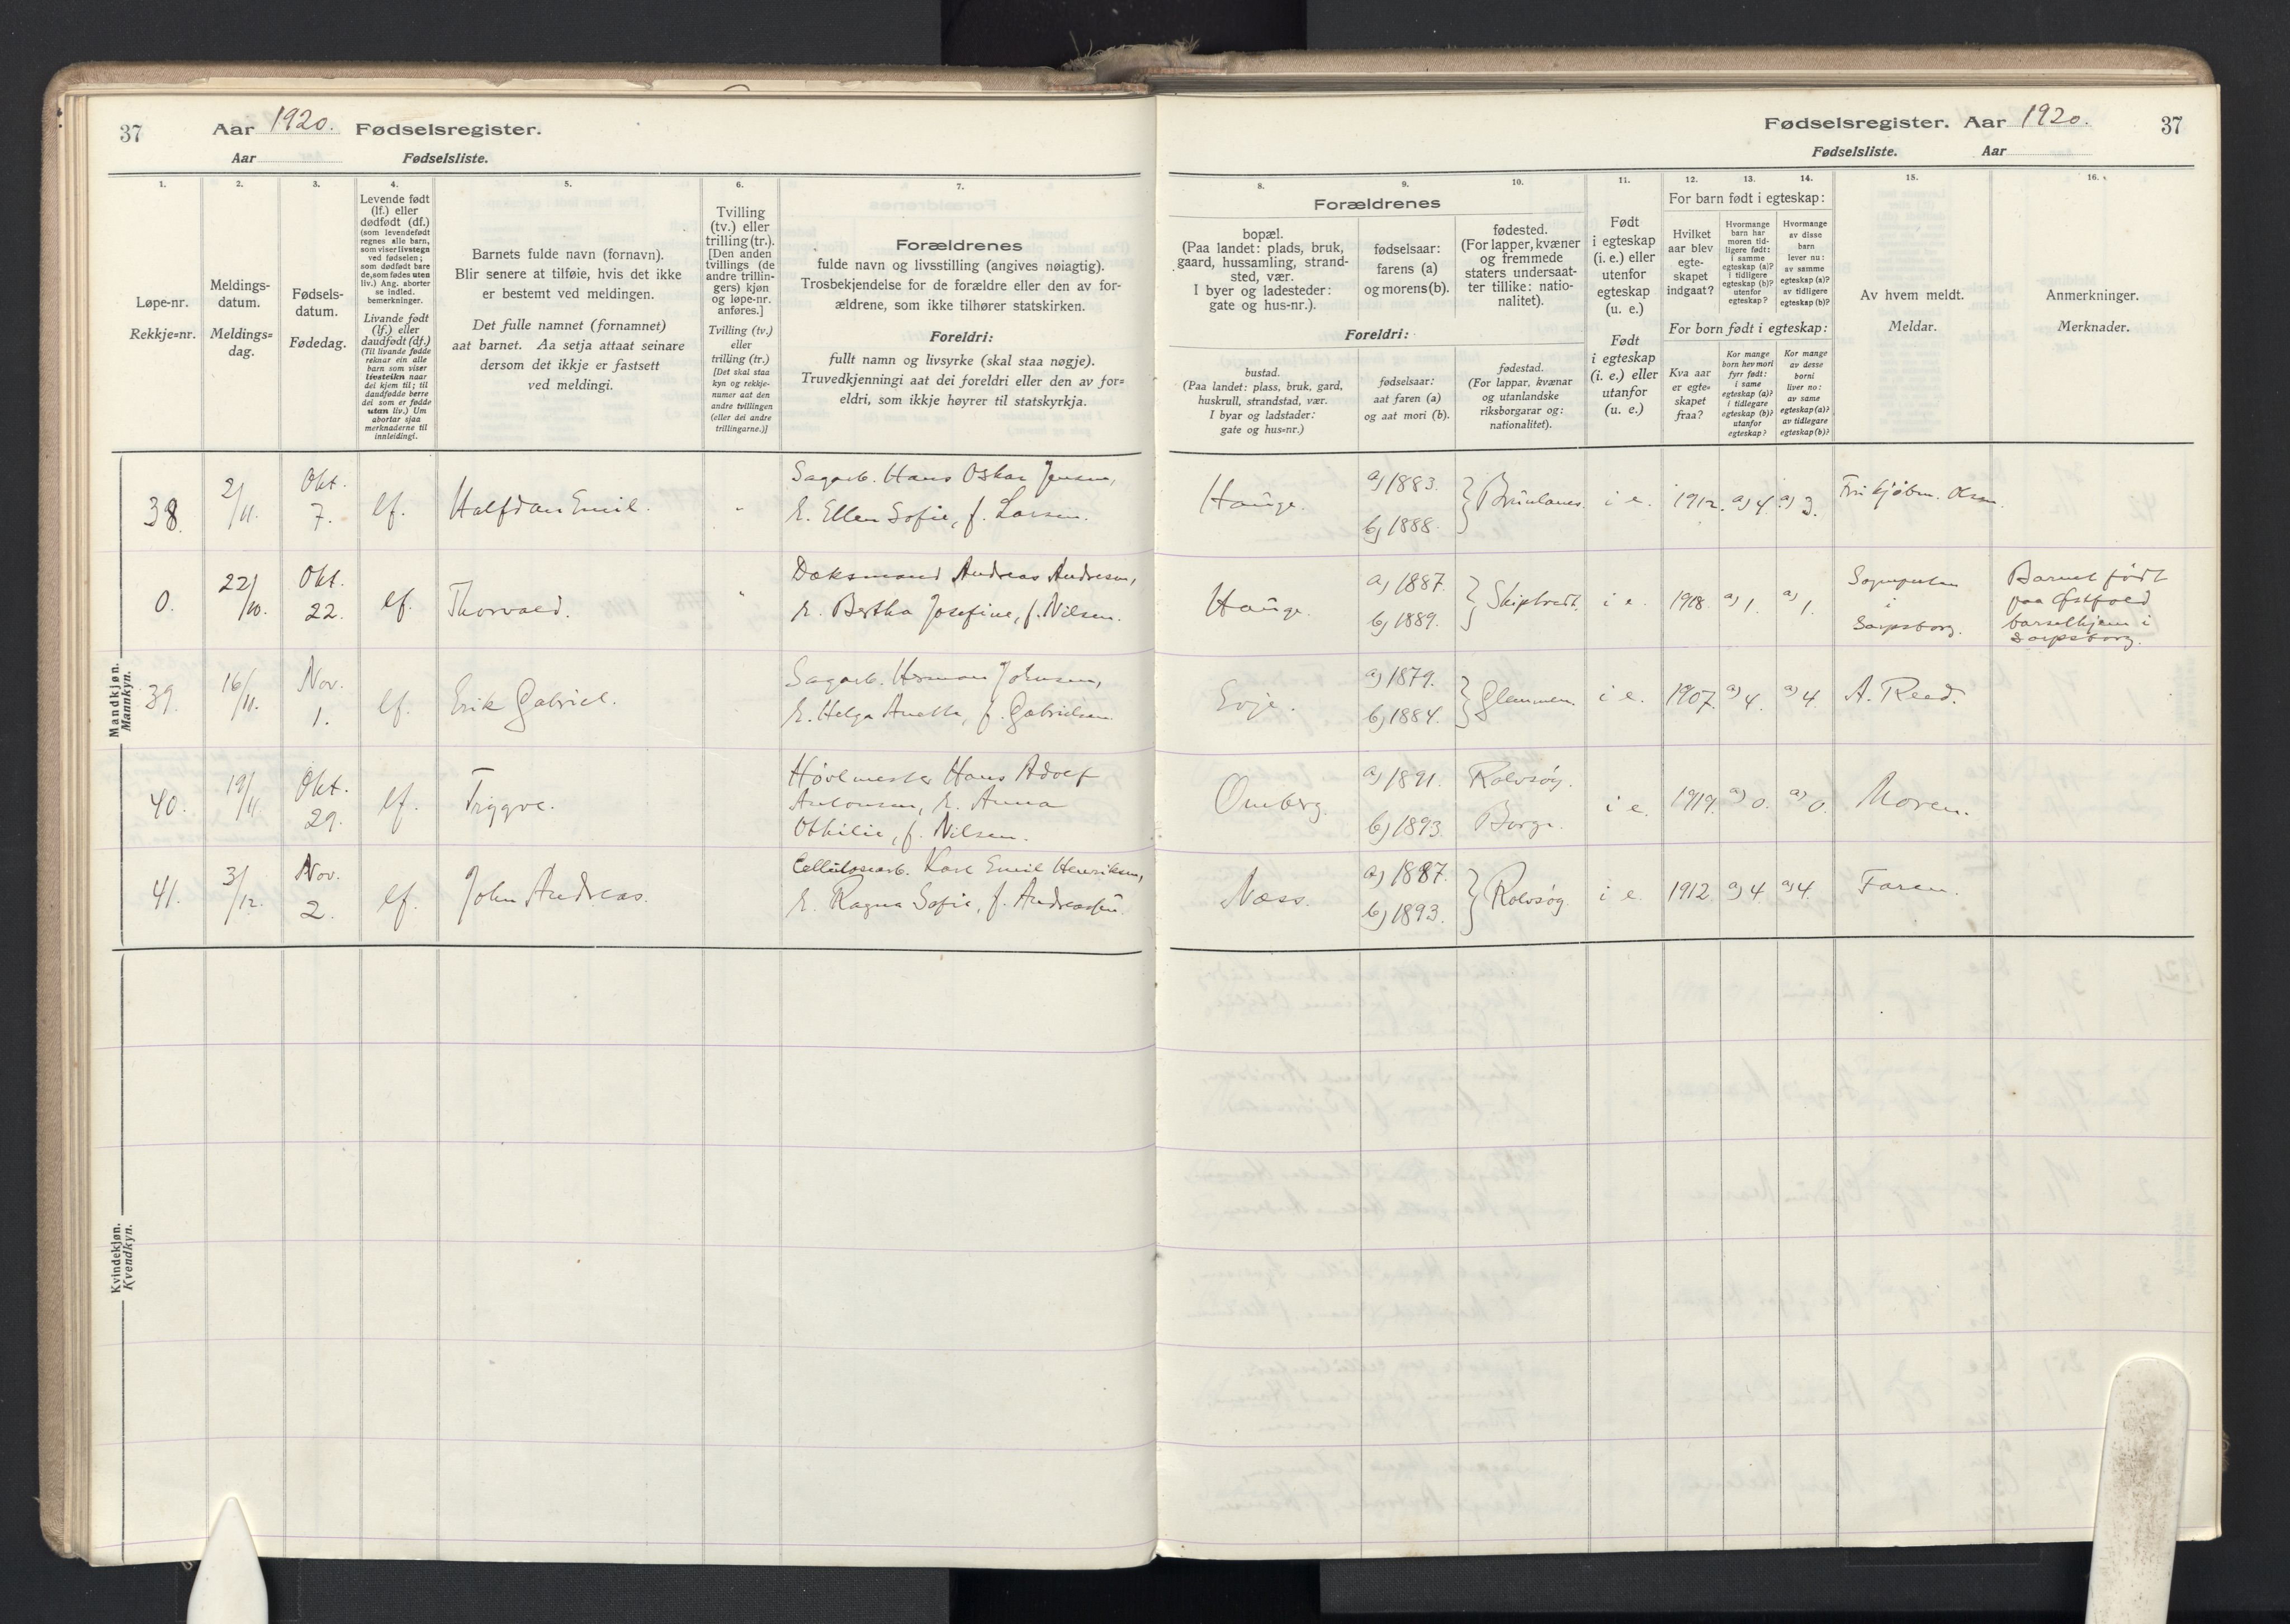 37 Aar 1920. Fødselsregister.
Aar Fødselsliste.
Fødselsregister. Aar 1920. 37
Fødselsliste. Aar
1. 2. 3. 4. 5. 6. 7.
Løpe-nr.
Rekkje=nr.
Meldings-
datum.
Meldings=
dag.
Fødsels-
datum.
Fødedag.
Levende født
(lf.) eller
dødfødt (df.)
(som levendefødt
regnes alle barn,
som viser livstegn
ved fødselen;
som dødfødt bare
de, som fødes uten
liv.) Ang. aborter
se indled.
bemerkninger.
Livande født
(lf.) eller
daudfødt (df.)
(Til livande fødde
reknar ein alle
barn som viser
livsteikn naar
dei kjem til; til
daudfødde berre
dei som er fødde
utan liv.) Um
abortar sjaa
merknaderne til
innleidingi.
Barnets fulde navn (fornavn).
Blir senere at tilføie, hvis det ikke
er bestemt ved meldingen.
Det fulle namnet (fornamnet)
aat barnet. Aa setja attaat seinare
dersom det ikkje er fastsett
ved meldingi.
Tvilling
(tv.) eller
trilling (tr.).
[Den anden
tvillings (de
andre trillin-
gers) kjøn
og løpe-nr.
anføres.]
Tvilling (tv.)
eller
trilling (tr.)
[Det skal staa
kyn og rekkje-
numer aat den
andre tvillingen
(eller dei andre
trillingarne.)]
Forældrenes
fulde navn og livsstilling (angives nøiagtig).
Trosbekjendelse for de forældre eller den av for-
ældrene, som ikke tilhører statskirken.
Foreldri:
fullt namn og livsyrke (skal staa nøgje).
Truvedkjenningi aat dei foreldri eller den av for=
eldri, som ikkje høyrer til statskyrkja.
8. 9. 10. 11. 12. 13. 14. 15. 16.
Forældrenes
bopæl.
(Paa landet: plads, bruk,
gaard, hussamling, strand-
sted, vær.
I byer og ladesteder:
gate og hus-nr.).
fødselsaar:
farens (a)
og morens (b).
fødested.
(For lapper, kvæner
og fremmede
staters undersaat-
ter tillike: natio-
nalitet).
Foreldri:
bustad.
(Paa landet: plass, bruk, gard,
huskrull, strandstad, vær.
I byar og ladstader:
gate og hus=nr.)
fødselsaar:
aat faren (a)
og aat mori (b).
fødestad.
(For lappar, kvænar
og utanlandske
riksborgarar og:
nationalitet).
Født
i egteskap
(i. e.) eller
utenfor
egteskap
(u. e.)
Født
i egteskap
(i. e.) eller
utanfor
(u. e.)
For barn født i egteskap:
Hvilket
aar blev
egte-
skapet
indgaat?
Hvormange
barn har
moren tid-
ligere født:
i samme
egteskap (a)?
i tidligere
egteskap (b)?
utenfor
egteskap?
Hvormange
av disse
barn
lever nu:
av samme
egteskap (a)?
av tidligere
egteskap (b)?
For born født i egteskap:
Kva aar
er egte=
skapet
fraa?
Kor mange
born hev mori
fyrr født:
i same
egteskap (a)?
i tidlegare
egteskap (b)?
utanfor
egteskap?
Kor mange
av desse
borni
liver no:
av same
egteskap (a)?
av tidlegare
egteskap (b)?
Av hvem meldt.
Meldar.
Anmerkninger.
Merknader.
Mandkjøn.
Mannkyn.
38. 2/11. Okt. 7. lf. Halfdan Emil. Sagarb. Hans Oskar Jensen,
E. Ellen Sofie, f. Larsen.
Hauge. a) 1883. b) 1888. Brunlanes. i e. 1912. a) 4. a) 3.
0. 22/10. Okt. 22. lf. Thorvald. Dæksmand Andreas Andresen,
E. Bertha Josefine, f. Nilsen.
Hauge. a) 1887. b) 1889. Skiptvedt. i e. 1918. a) 1. a) 1. Sogneprsten
i
Sarpsborg.
Barnet født
paa Østfold
barselhjem i
Sarpsborg.
39. 16/11. Nov. 1. lf. Erik Gabriel. Sagarb. Herman Johnsen,
E. Helga Anetta, f. Gabrielsen.
Evje. a) 1879. b) 1884. Glemmen. i e. 1907. a) 4. a) 4. A. Reed.
40. 19/11. Okt. 29. lf. Tryggve. Høvlmester Hans Adolf
Antonsen, E. Anna
Othilie, f. Nilsen.
Omberg. a) 1891. Rolvsøy. b) 1893. Borge. i e. 1919. a) 0. a) 0. Moren.
41. 3/12. Nov. 2. lf. John Andreas. Cellulosearb. Karl Emil Henriksen,
E. Ragna Sofie, f. Andreassen.
Næss. a) 1887. b) 1893. Rolvsøy. i e. 1912. a) 4. a) 4. Faren.
Kvindekjøn.
Kvendkyn.